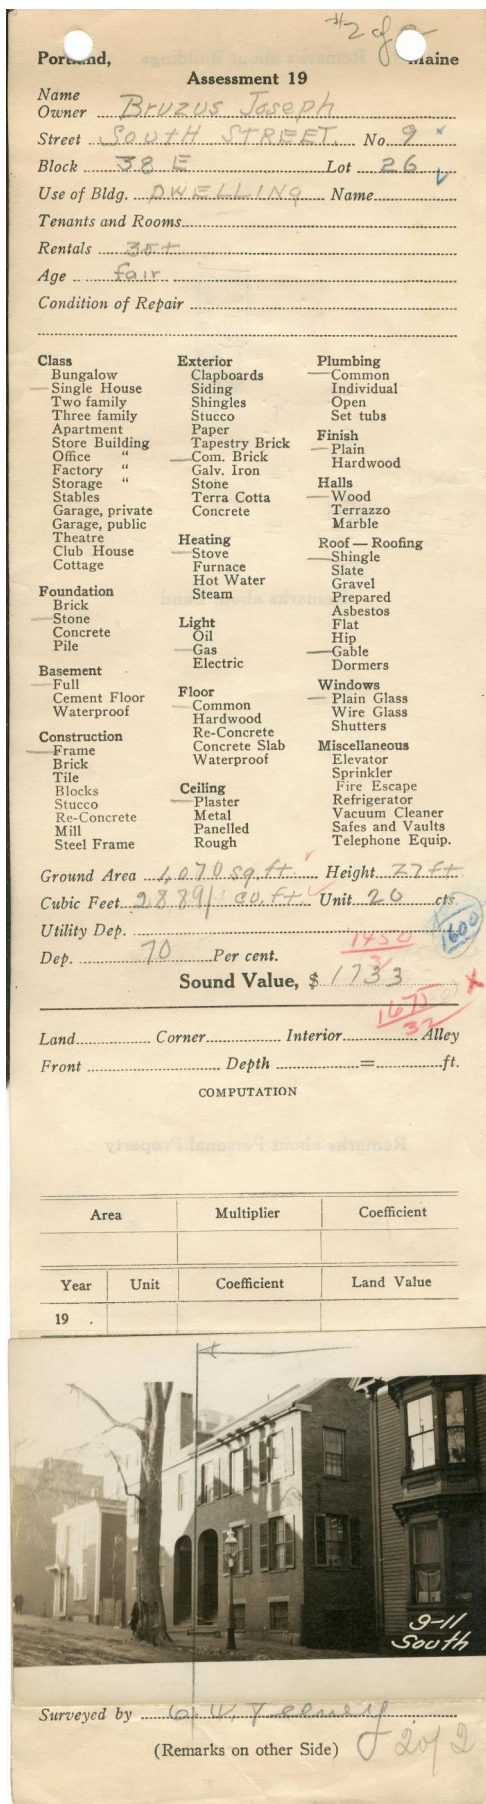 #2 of 2
Portland, Maine
Assessment 19
Name
Owner Bruzus Joseph
Street SOUTH STREET No. 9 x
Block 38 E Lot 26
Use of Bldg. DWELLING Name
Tenants and Rooms
Rentals 35+
Age fair
Condition of Repair
Class
Bungalow
Single House
Two family
Three family
Apartment
Store Building
Office "
Factory "
Storage "
Stables
Garage, private
Garage, public
Theatre
Club House
Cottage
Foundation
Brick
Stone
Concrete
Pile
Basement
Full
Cement Floor
Waterproof
Construction
Frame
Brick
Tile
Blocks
Stucco
Re-Concrete
Mill
Steel Frame
Exterior
Clapboards
Siding
Shingles
Stucco
Paper
Tapestry Brick
Com. Brick
Galv. Iron
Stone
Terra Cotta
Concrete
Heating
Stove
Furnace
Hot Water
Steam
Light
Oil
Gas
Electric
Floor
Common
Hardwood
Re-Concrete
Concrete Slab
Waterproof
Ceiling
Plaster
Metal
Panelled
Rough
Plumbing
Common
Individual
Open
Set tubs
Finish
Plain
Hardwood
Halls
Wood
Terrazzo
Marble
Roof — Roofing
Shingle
Slate
Gravel
Prepared
Asbestos
Flat
Hip
Gable
Dormers
Windows
Plain Glass
Wire Glass
Shutters
Miscellaneous
Elevator
Sprinkler
Fire Escape
Refrigerator
Vacuum Cleaner
Safes and Vaults
Telephone Equip.
Ground Area 1,070 sq.ft Height 27 ft
Cubic Feet 28891 cu.ft. Unit 20 cts.
Utility Dep. 1600
1450
Dep. 70 Per cent.
Sound Value, $ 1733
1675
32
Land Corner Interior Alley
Front Depth = ft.
COMPUTATION
Remarks about Personal Property
Area Multiplier Coefficient
Year Unit Coefficient Land Value
19 .
9-11
South
Surveyed by
(Remarks on other Side) 2 of 2